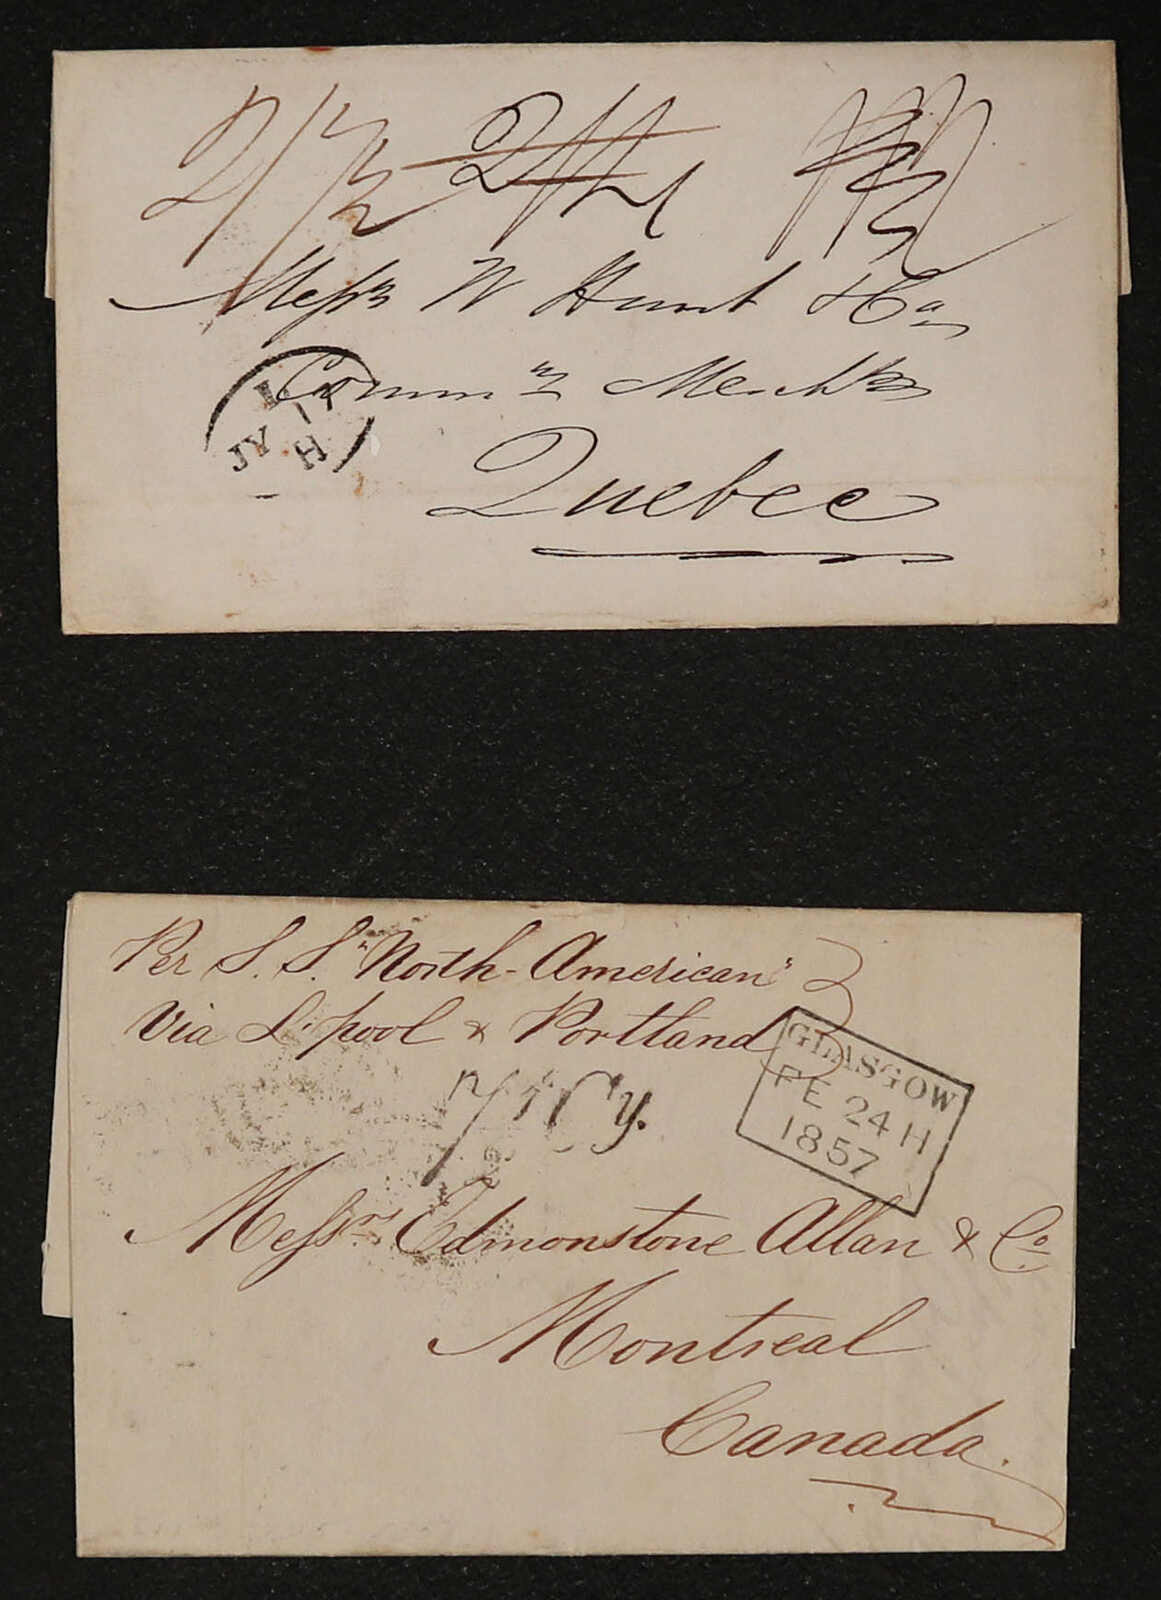 Messrs W Hunt & Co
Commn Merchts
JY 17
H
Quebec
Per S. S. "North-American"
Via L'pool & Portland
GLASGOW
FE 24 H
1857
Messrs Edmonstone Allan & Co
Montreal
Canada.